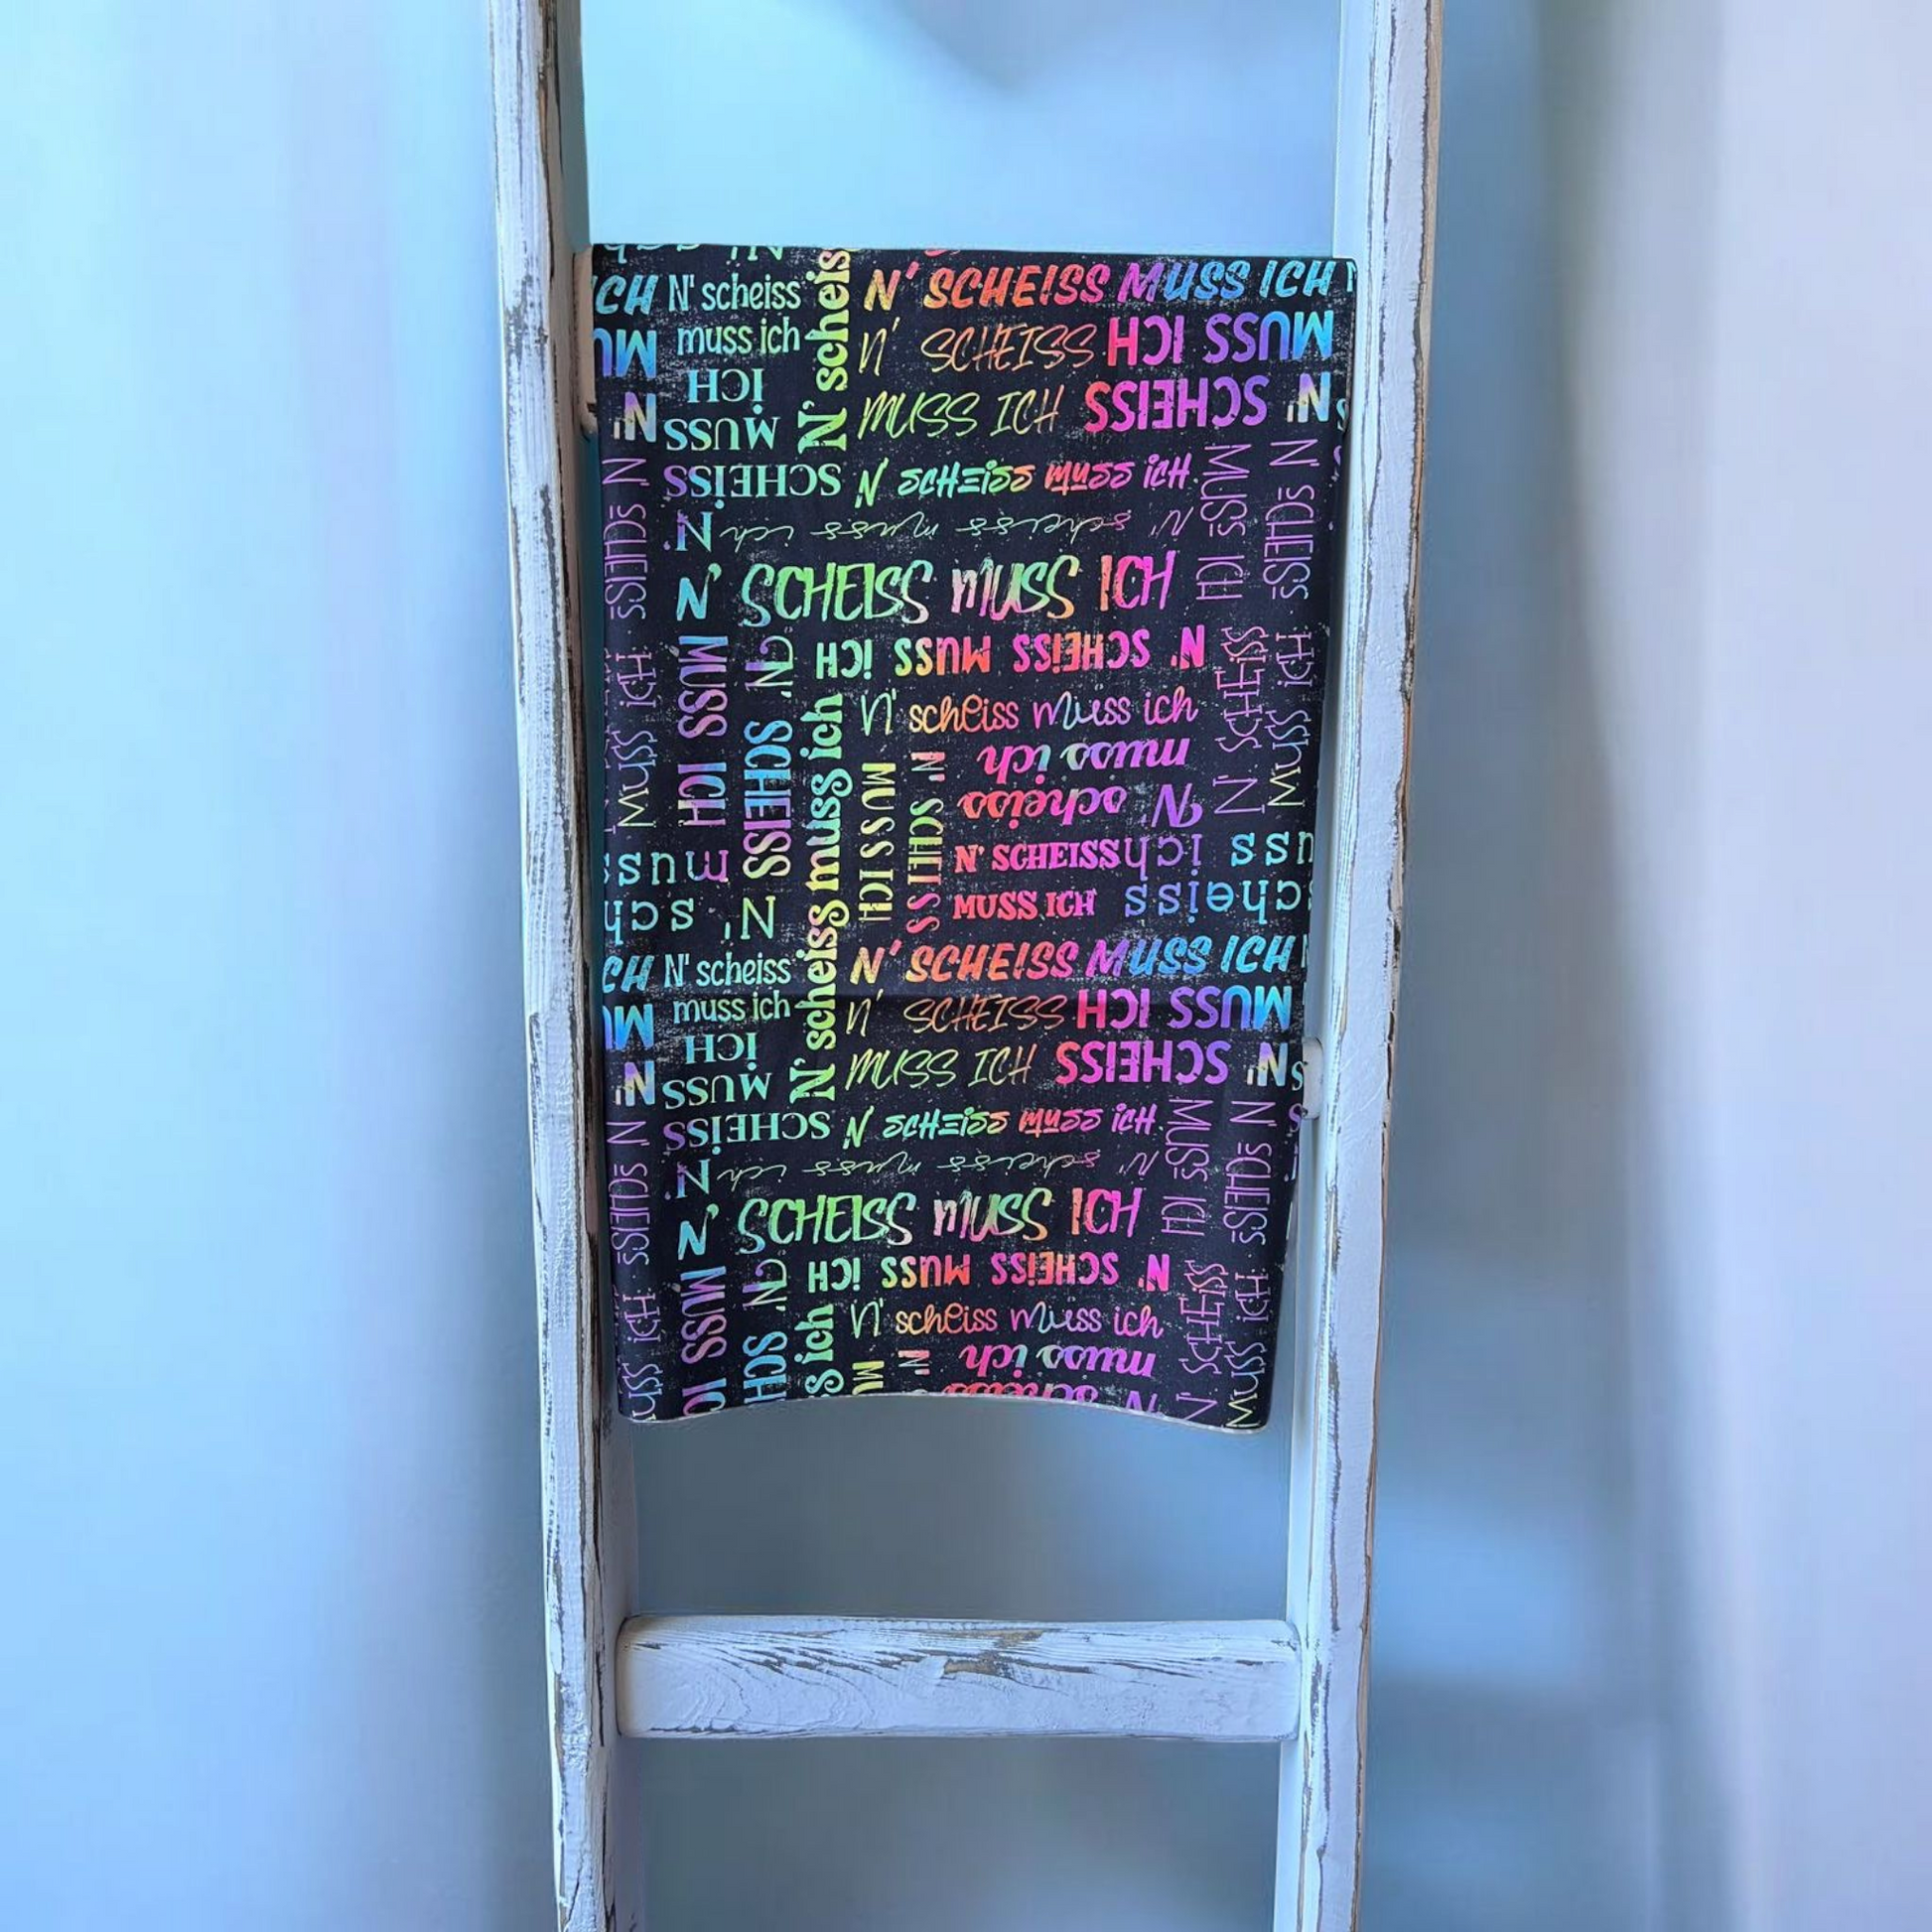 N' scheiss
N' SCHEISS MUSS ICH
CH N' scheiss
muss ich
N' SCHEISS
MUSS ICH
N' SCHEISS
MUSS ICH
N' SCHEISS MUSS ICH
N' SCHEISS
MUSS ICH
N' scheiss muss ich
N' SCHEISS MUSS ICH
N' SCHEISS
MUSS ICH
N' SCHEISS
MUSS ICH
N' SCHEISS
MUSS ICH
N' SCHEISS MUSS ICH
N' scheiss muss ich
N' scheiss
muss ich
N' scheiss muss ich
N' SCHEISS
MUSS ICH
N' SCHEISS
Muss ich
N' SCHEISS
MUSS ICH
N' sch
muss
scheiss
uss ich
CH N' scheiss
muss ich
N' SCHEISS MUSS ICH
N' SCHEISS
MUSS ICH
N' SCHEISS
MUSS ICH
N' SCHEISS
MUSS ICH
N' SCHEISS MUSS ICH
N' scheiss muss ich
N' SCHEISS MUSS ICH
N' SCHEISS
MUSS ICH
N' SCHEISS MUSS ICH
N' scheiss muss ich
muss ich
N' SCHEISS
Muss ich